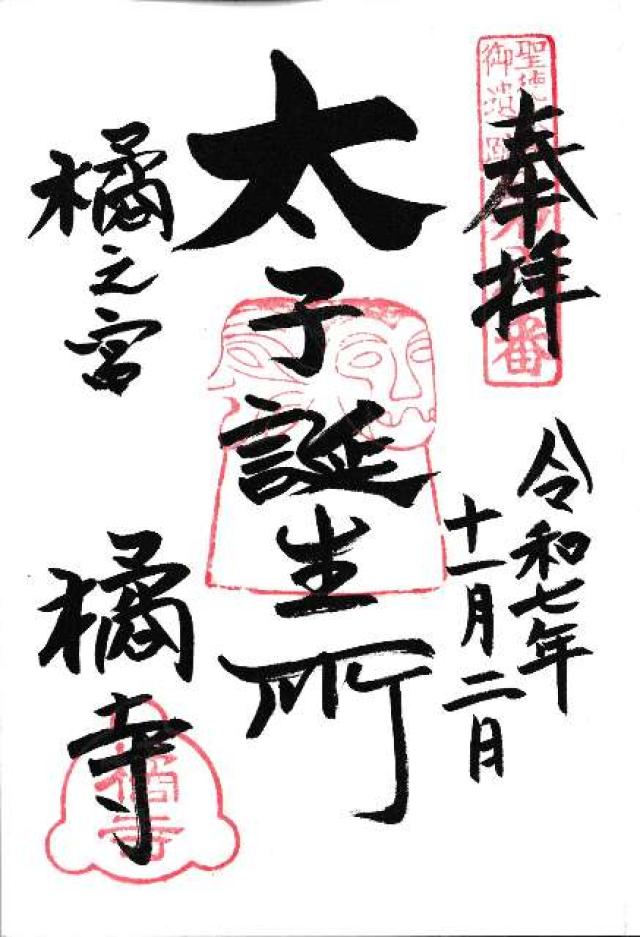 奉拝
聖徳
御遺跡第八番
令和七年
十一月二日
太子誕生所
橘之宮
橘寺
橘寺